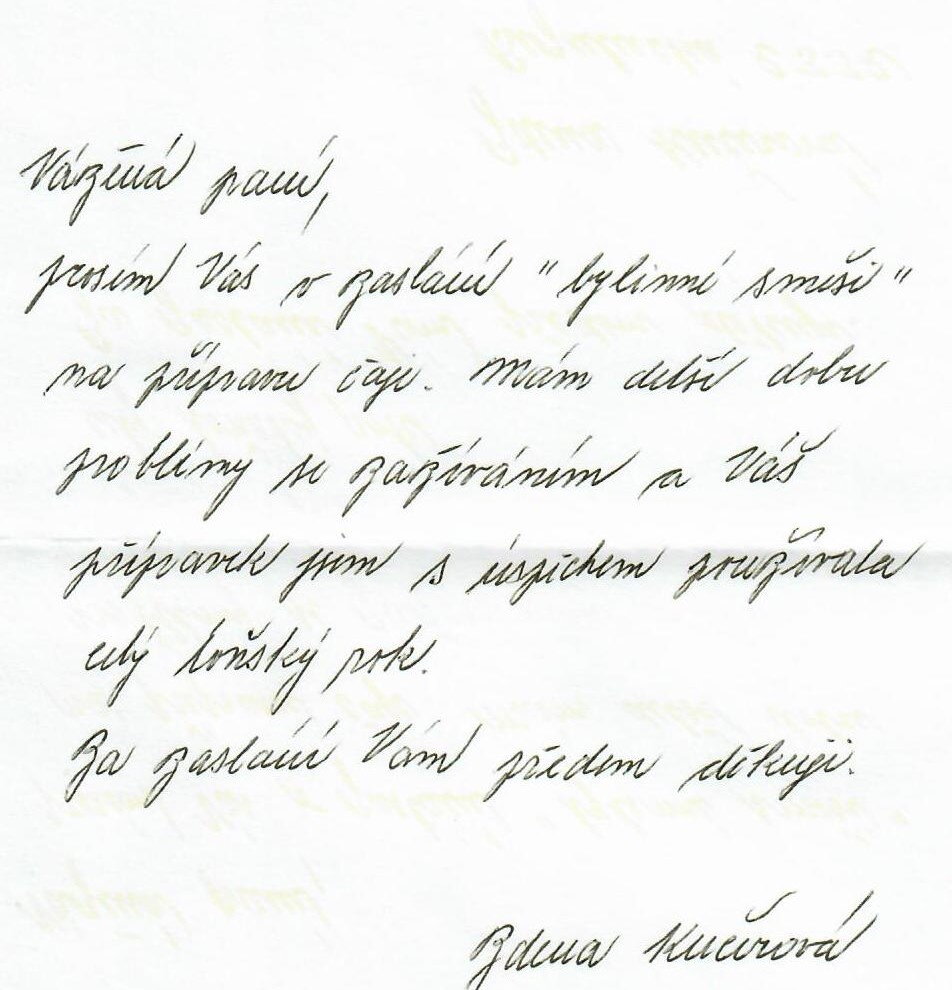 Vážená paní,
prosím Vás o zaslání "bylinné směsi"
na přípravu čaje. Mám delší dobu
problémy se zažíváním a Váš
přípravek jsem s úspěchem používala
celý loňský rok.
Za zaslání Vám předem děkuji.
Zdena Kučerová